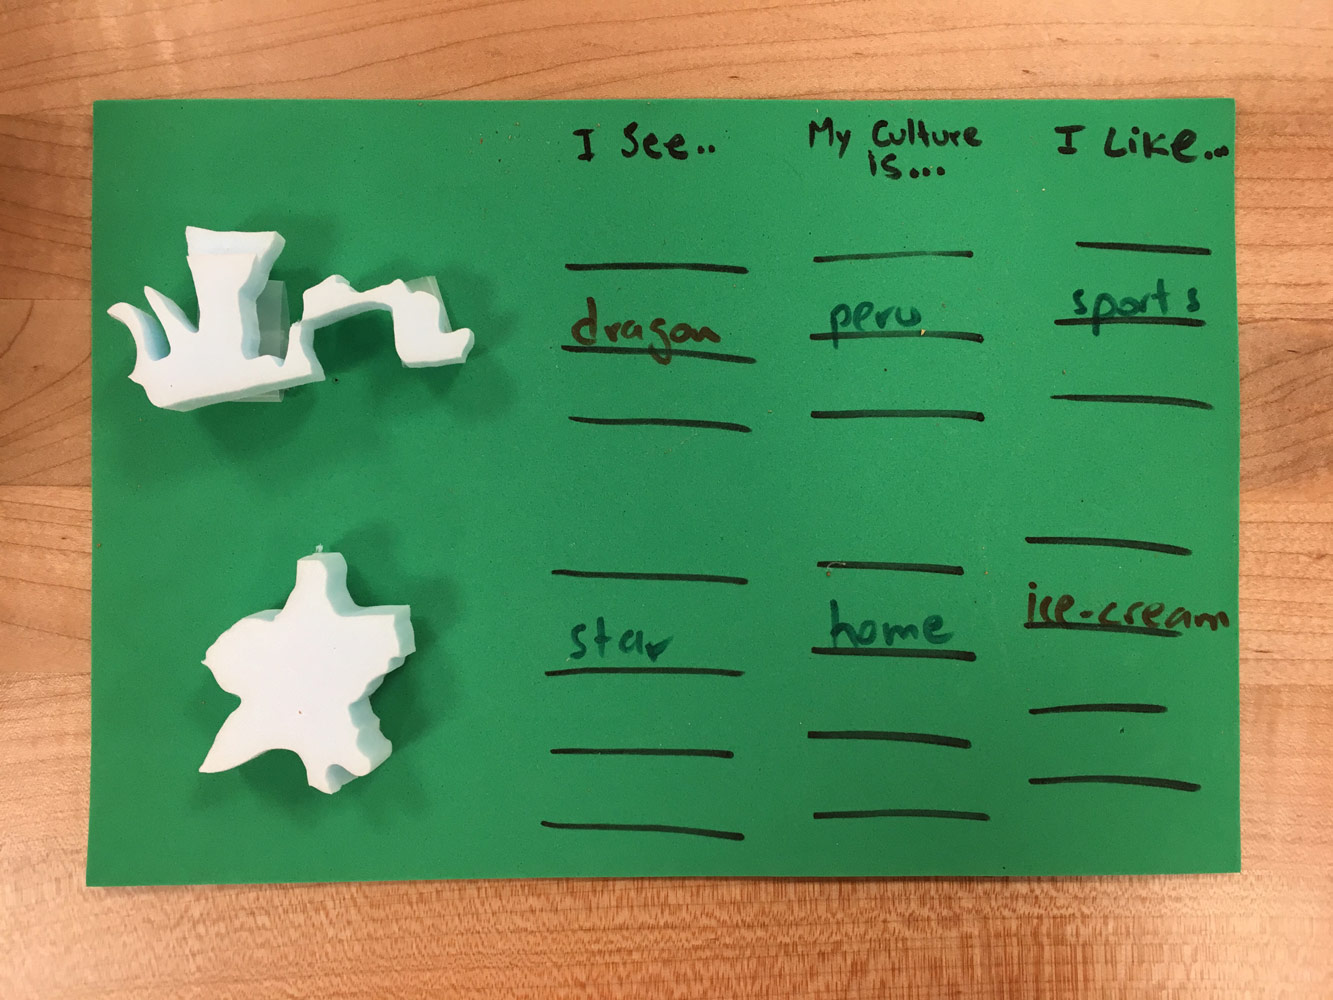 I See..
My Culture
is...
I Like...
dragon
peru
sports
star
home
ice-cream